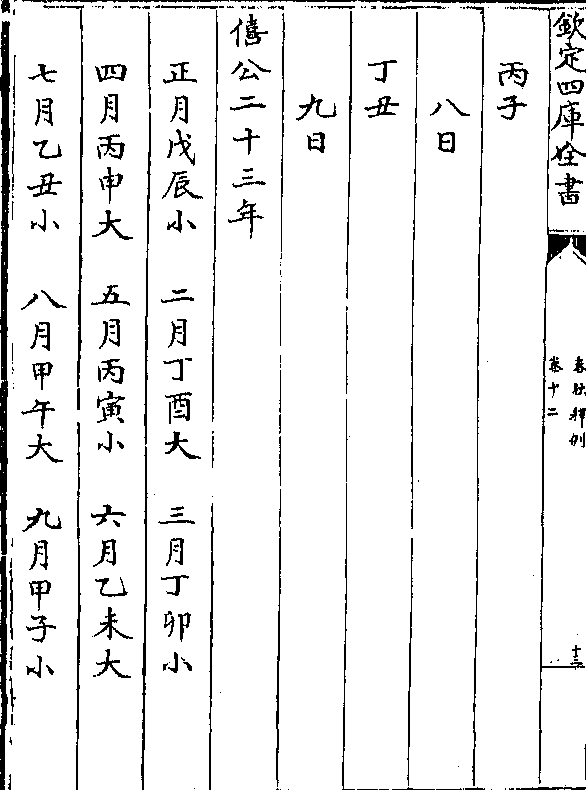 欽定四庫全書
春秋釋例
卷十二
十三
丙子
八日
丁丑
九日
僖公二十三年
正月戊辰小 二月丁酉大 三月丁卯小
四月丙申大 五月丙寅小 六月乙未大
七月乙丑小 八月甲午大 九月甲子小